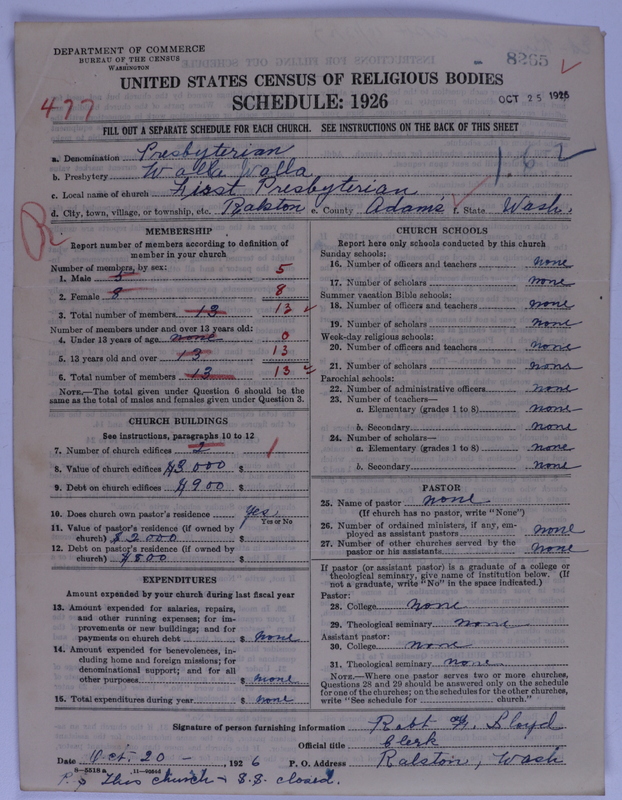 DEPARTMENT OF COMMERCE
BUREAU OF THE CENSUS
WASHINGTON
8265
UNITED STATES CENSUS OF RELIGIOUS BODIES
477
SCHEDULE: 1926
OCT 25 1926
FILL OUT A SEPARATE SCHEDULE FOR EACH CHURCH. SEE INSTRUCTIONS ON THE BACK OF THIS SHEET
a. Denomination Presbyterian
b. Presbytery Walla Walla
1.6 2
c. Local name of church First Presbyterian
d. City, town, village, or township, etc. Ralston e. County Adams f. State Wash.
R
MEMBERSHIP
Report number of members according to definition of
member in your church
Number of members, by sex:
1. Male 5 5
2. Female 8 8
3. Total number of members 13 13
Number of members under and over 13 years old:
4. Under 13 years of age none 0
5. 13 years old and over 13 13
6. Total number of members 13 13
NOTE.—The total given under Question 6 should be the
same as the total of males and females given under Question 3.
CHURCH BUILDINGS
See instructions, paragraphs 10 to 12
7. Number of church edifices 2 1
8. Value of church edifices $3000 $
9. Debt on church edifices $900 $
10. Does church own pastor's residence Yes
Yes or No
11. Value of pastor's residence (if owned by
church) $2000 $
12. Debt on pastor's residence (if owned by
church) $800 $
EXPENDITURES
Amount expended by your church during last fiscal year
13. Amount expended for salaries, repairs,
and other running expenses; for im-
provements or new buildings; and for
payments on church debt $ none
14. Amount expended for benevolences, in-
cluding home and foreign missions; for
denominational support; and for all
other purposes $ none
15. Total expenditures during year $ none
CHURCH SCHOOLS
Report here only schools conducted by this church
Sunday schools:
16. Number of officers and teachers none
17. Number of scholars none
Summer vacation Bible schools:
18. Number of officers and teachers none
19. Number of scholars none
Week-day religious schools:
20. Number of officers and teachers none
21. Number of scholars none
Parochial schools:
22. Number of administrative officers none
23. Number of teachers—
a. Elementary (grades 1 to 8) none
b. Secondary none
24. Number of scholars—
a. Elementary (grades 1 to 8) none
b. Secondary none
PASTOR
25. Name of pastor none
(If church has no pastor, write "None")
26. Number of ordained ministers, if any, em-
ployed as assistant pastors none
27. Number of other churches served by the
pastor or his assistants none
If pastor (or assistant pastor) is a graduate of a college or
theological seminary, give name of institution below. (If
not a graduate, write "No" in the space indicated.)
Pastor:
28. College none
29. Theological seminary none
Assistant pastor:
30. College none
31. Theological seminary none
NOTE.—Where one pastor serves two or more churches,
Questions 28 and 29 should be answered only on the schedule
for one of the churches; on the schedules for the other churches,
write "See schedule for church."
Signature of person furnishing information Robt Lloyd
Official title Clerk
Date Oct. 20 , 1926 P. O. Address Ralston, Wash
8-5518a 11-9054d
P.S This church & S.S. closed.